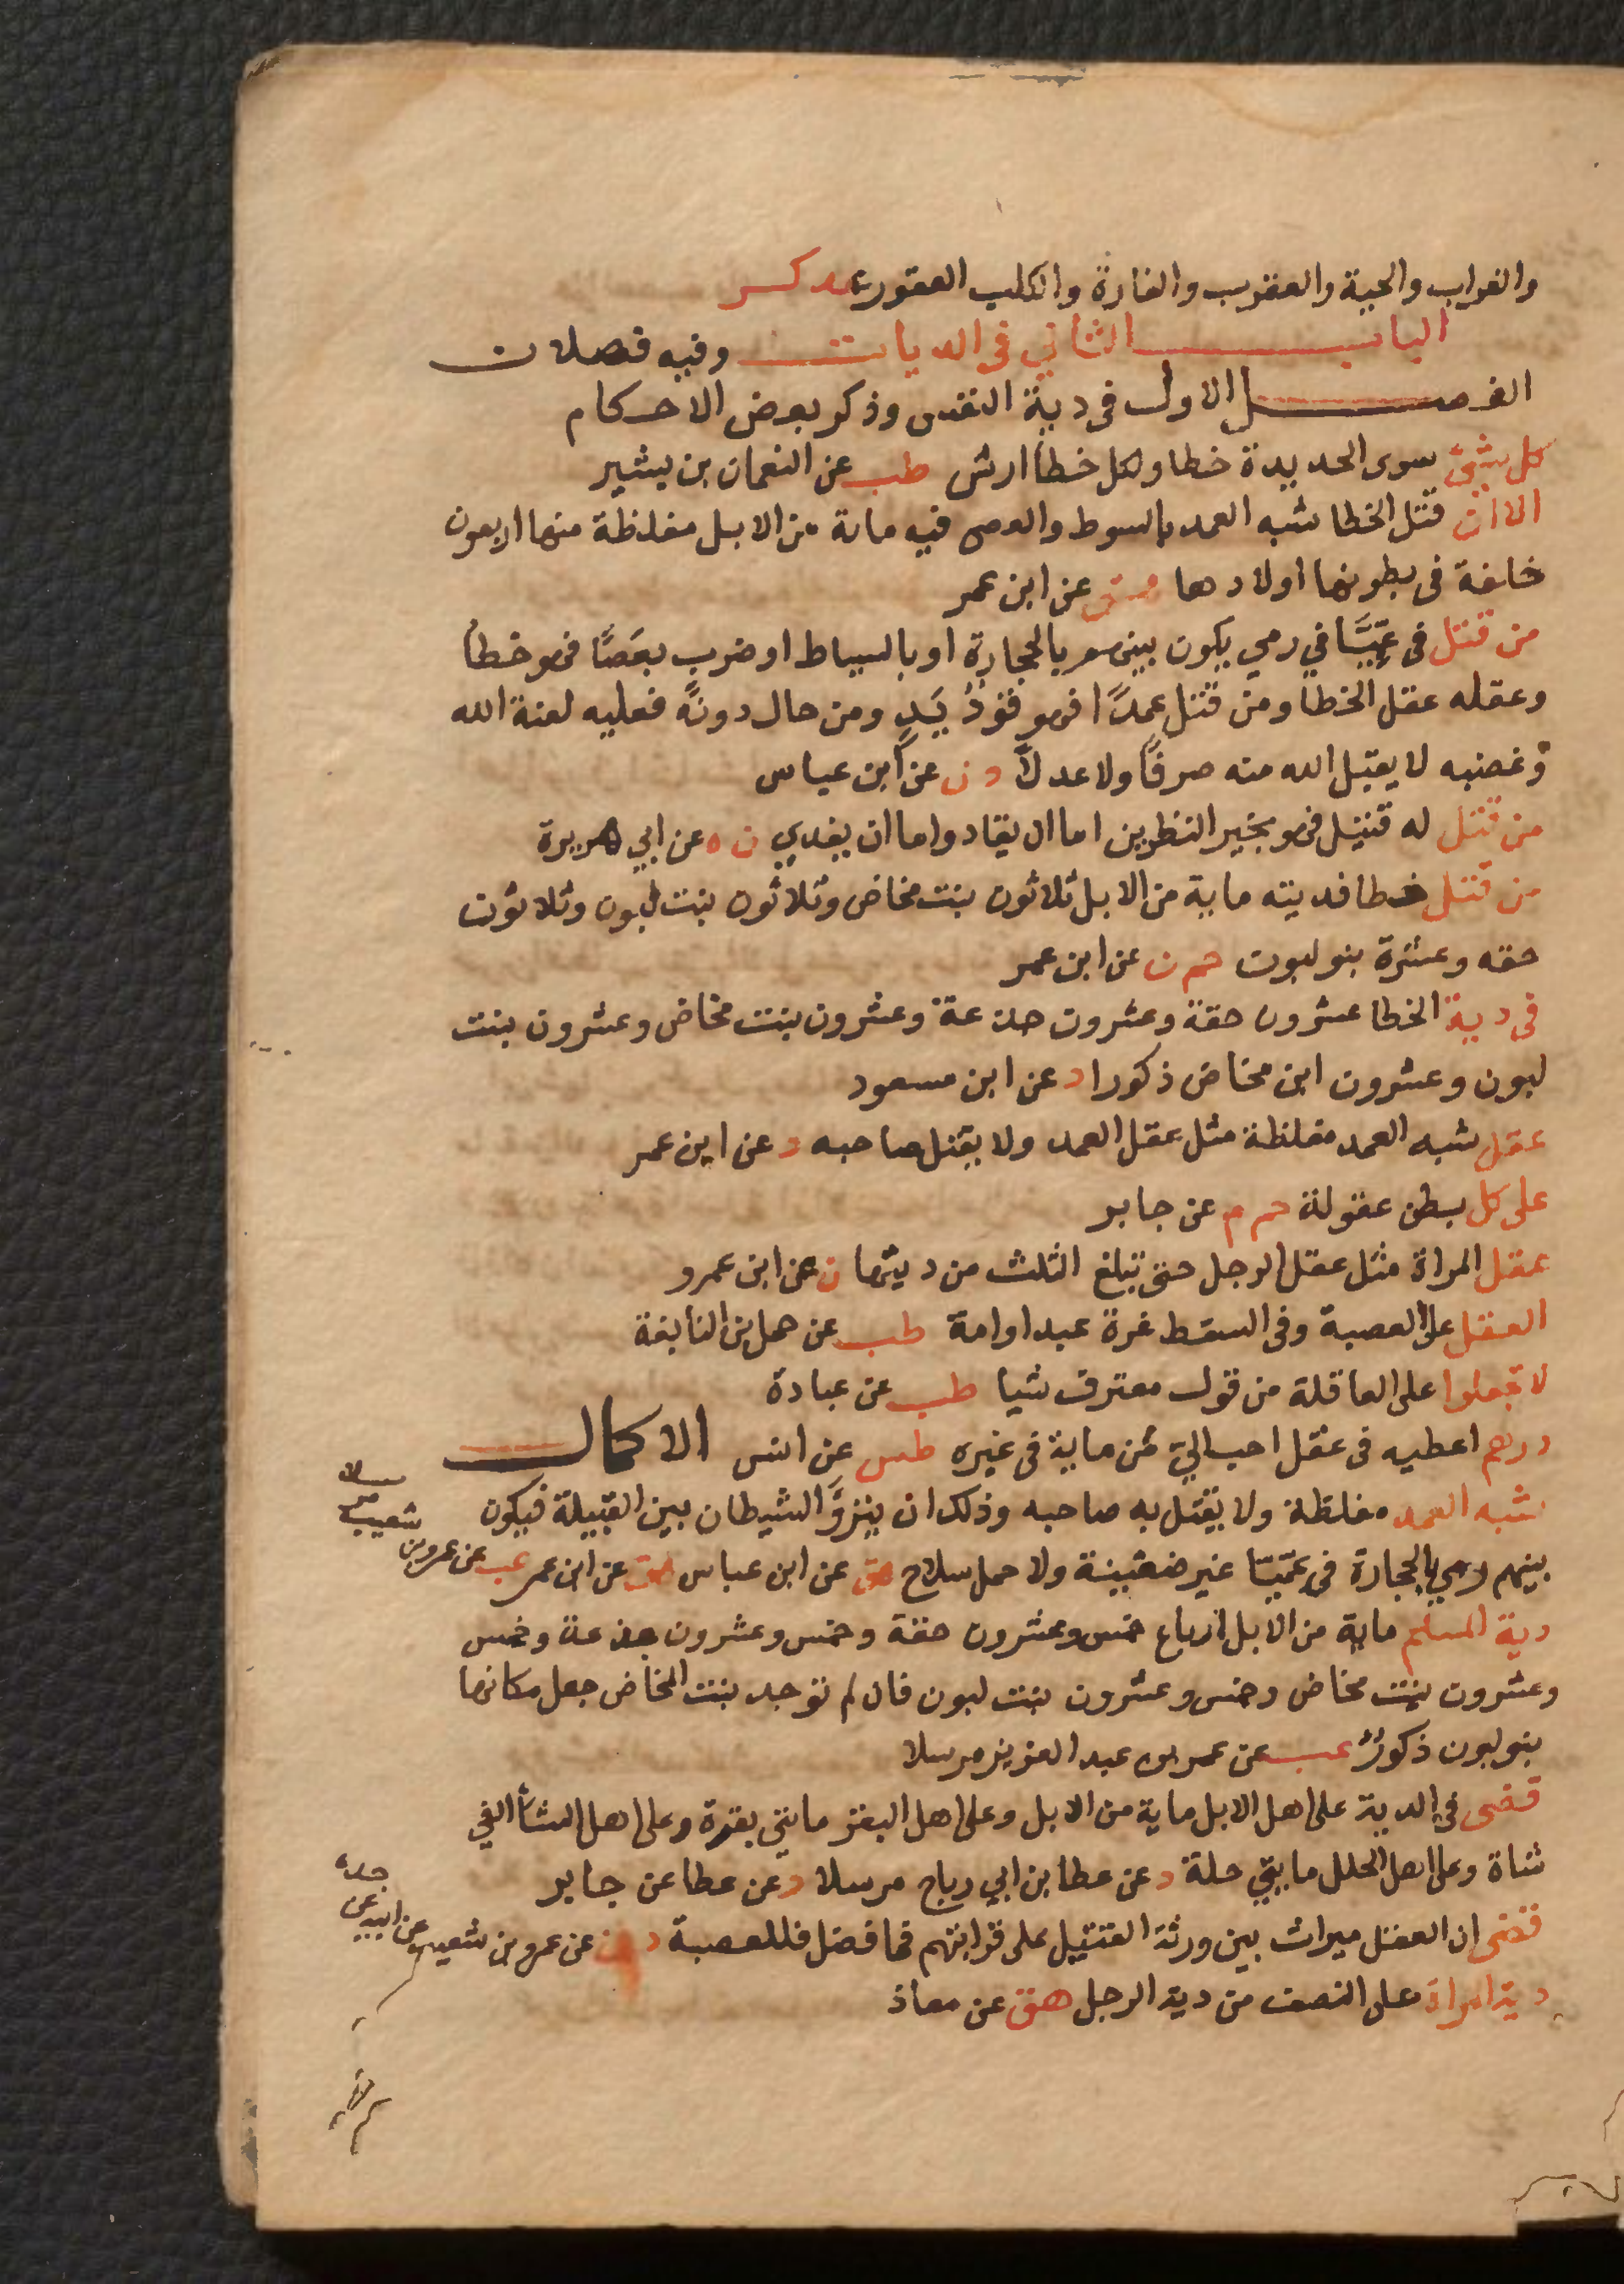 والغراب والحية والعقرب والفارة والكلب العقور عد كر
الباب الثاني في الديات وفيه فصلان
الفصل الاول في دية النفس وذكر بعض الاحكام
كل شيئ سوى الحديدة خطا ولكل خطا ارش طب عن النعمان بن بشير
الا ان قتل الخطا شبه العمد بالسوط والعصى فيه ماية من الابل مغلظة منها اربعون
خلفة في بطونها اولادها هق عن ابن عمر
من قتل في عِمِّيَّا في رمي يكون بينهم بالحجارة او بالسياط او ضرب بعَصًا فهو خطأ
وعقله عقل الخطا ومن قتل عمدًا فهو قَوَدُ يَدٍ ومن حال دونه فعليه لعنة الله
وغضبه لا يقبل الله منه صرفًا ولا عدلًا د ن عن ابن عباس
من قتل له قتيل فهو بخير النظرين اما ان يقاد واما ان يفدي ن ه عن ابي هريرة
من قتل خطا فديته ماية من الابل ثلاثون بنت مخاض وثلاثون بنت لبون وثلاثون
حقه وعشرة بنو لبون حم ن عن ابن عمر
في دية الخطا عشرون حقة وعشرون جذعة وعشرون بنت مخاض وعشرون بنت
لبون وعشرون ابن مخاض ذكورا د عن ابن مسعود
عقل شبه العمد مغلظة مثل عقل العمد ولا يقتل صاحبه د عن ابن عمر
على كل بطن عقولة حم م عن جابر
عقل المراة مثل عقل الرجل حتى تبلغ الثلث من ديتها ن عن ابن عمرو
العقل على العصبة وفي السقط غرة عبد او امة طب عن حمل بن النابغة
لا تجعلوا على العاقلة من قول معترف شيا طب عن عبادة
درهم اعطيه في عقل احب الي من ماية في غيره طس عن انس الاكمال
شبه العمد مغلظة ولا يقتل به صاحبه وذلك ان ينزو الشيطان بين القبيلة فيكون
بينهم رمي بالحجارة في عميّا غير ضغينة ولا حمل سلاح هق عن ابن عباس هق عن ابن عمر عب عن عمرو بن
شعيب
مرسلا
دية المسلم ماية من الابل ارباع خمس وعشرون حقة وخمس وعشرون جذعة وخمس
وعشرون بنت مخاض وخمس وعشرون بنت لبون فان لم توجد بنت المخاض جعل مكانها
بنو لبون ذكورٌ عب عن عمر بن عبد العزيز مرسلا
قضى في الدية على اهل الابل ماية من الابل وعلى اهل البقر مايتي بقرة وعلى اهل الشأ الفي
شاة وعلى اهل الحلل مايتي حلة د عن عطا بن ابي رباح مرسلا د عن عطا عن جابر
قضى ان العقل ميراث بين ورثة القتيل على قرابتهم فما فضل فللعصبة د ن عن عمرو بن شعيب عن ابيه عن
جده
دية المراة على النصف من دية الرجل هق عن معاذ